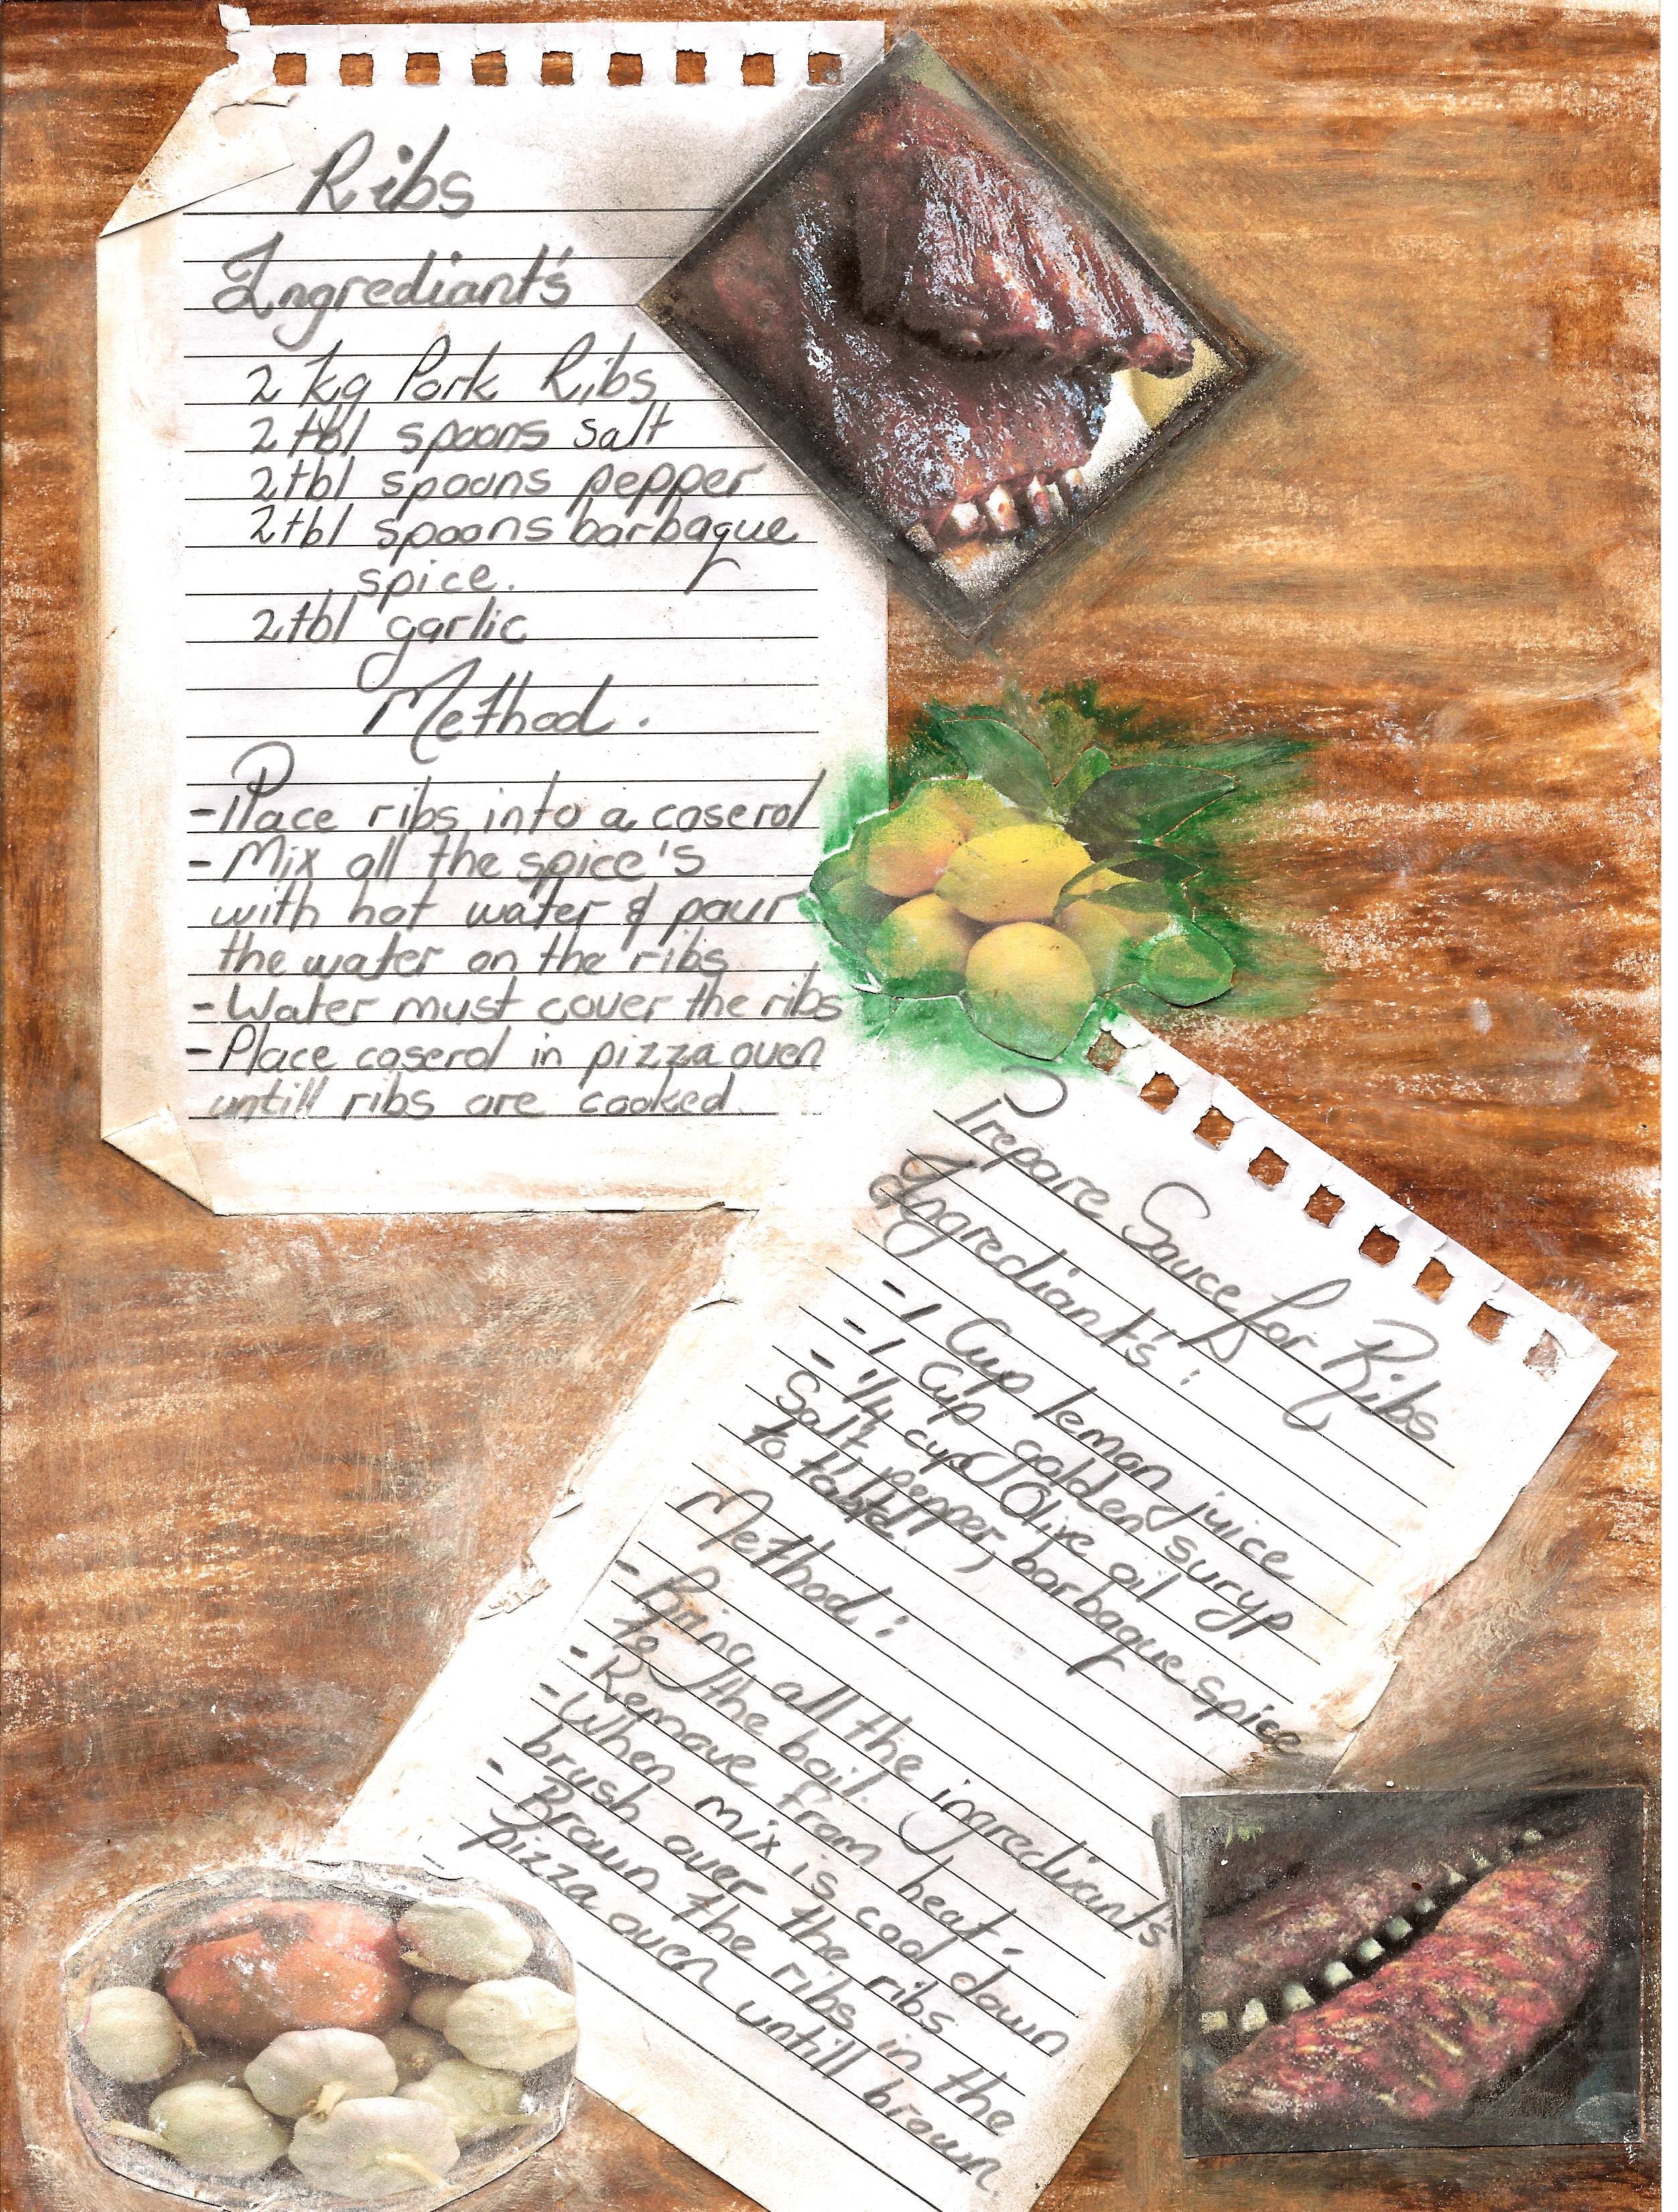 Ribs
Ingrediant's
2 kg Pork Ribs
2 tbl spoons salt
2 tbl spoons pepper
2 tbl spoons barbaque
spice.
2 tbl garlic
Method.
- Place ribs into a caserol
- Mix all the spice's
with hot water & pour
the water on the ribs
- Water must cover the ribs
- Place caserol in pizza oven
untill ribs are cooked.
Prepare Sauce for Ribs
Ingrediant's:
- 1 Cup lemon juice
- 1 Cup golden suryp
- 1/4 cup Olive oil
Salt, pepper, barbaque spice
to taste.
Method:
- Bring all the ingrediant's
to the boil.
- Remove from heat.
- When mix is cool down
brush over the ribs
- Brown the ribs in the
pizza oven untill brown.